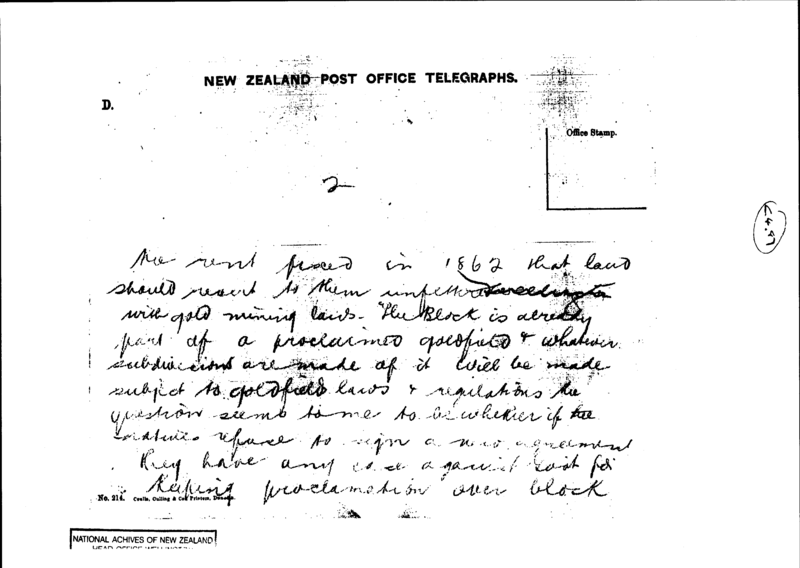 NEW ZEALAND POST OFFICE TELEGRAPHS.
D.
Office Stamp.
2
the rent fixed in 1862 that land
should revert to them unfettered
with gold mining laws. The Block is already
part of a proclaimed goldfield & whatever
subdivisions are made of it will be made
subject to goldfield laws & regulations the
question seems to me to be whether if the
natives refuse to sign a new agreement
they have any case against Govt for
keeping proclamation over block
No. 214. Coulls, Culling & Co., Printers,
NATIONAL ACHIVES OF NEW ZEALAND
HEAD OFFICE WELLINGTON